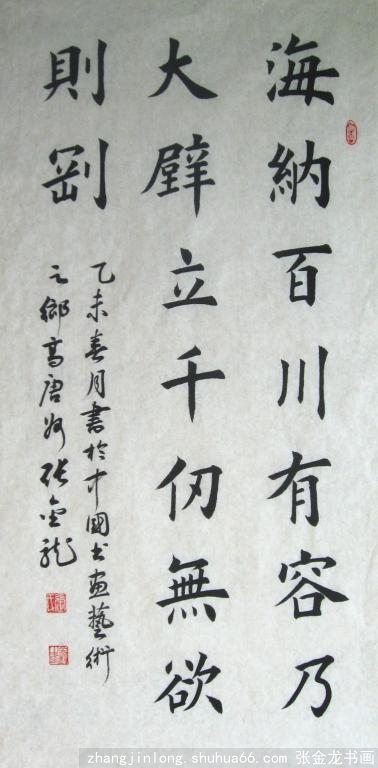 海納百川有容乃
大壁立千仞無欲
則剛
乙未春月書於中國书畫藝術
之鄉高唐州张金龍
zhangjinlong.shuhua66.com 张金龙书画